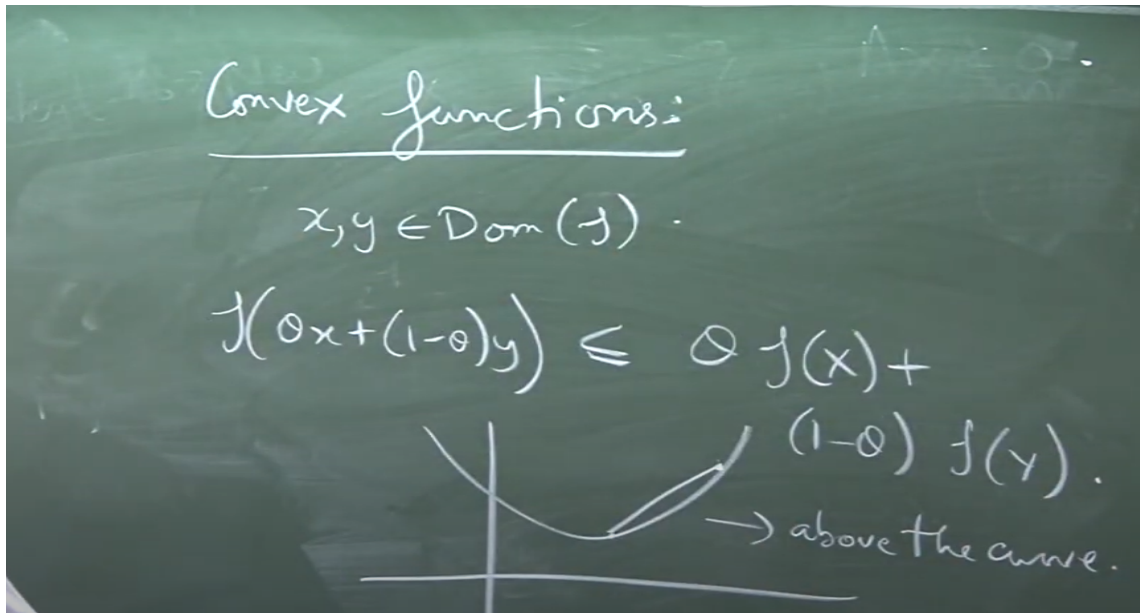 Convex functions:
x, y ∈ Dom (f) .
f(θx+(1-θ)y) ≤ θ f(x)+
(1-θ) f(y).
→ above the curve.